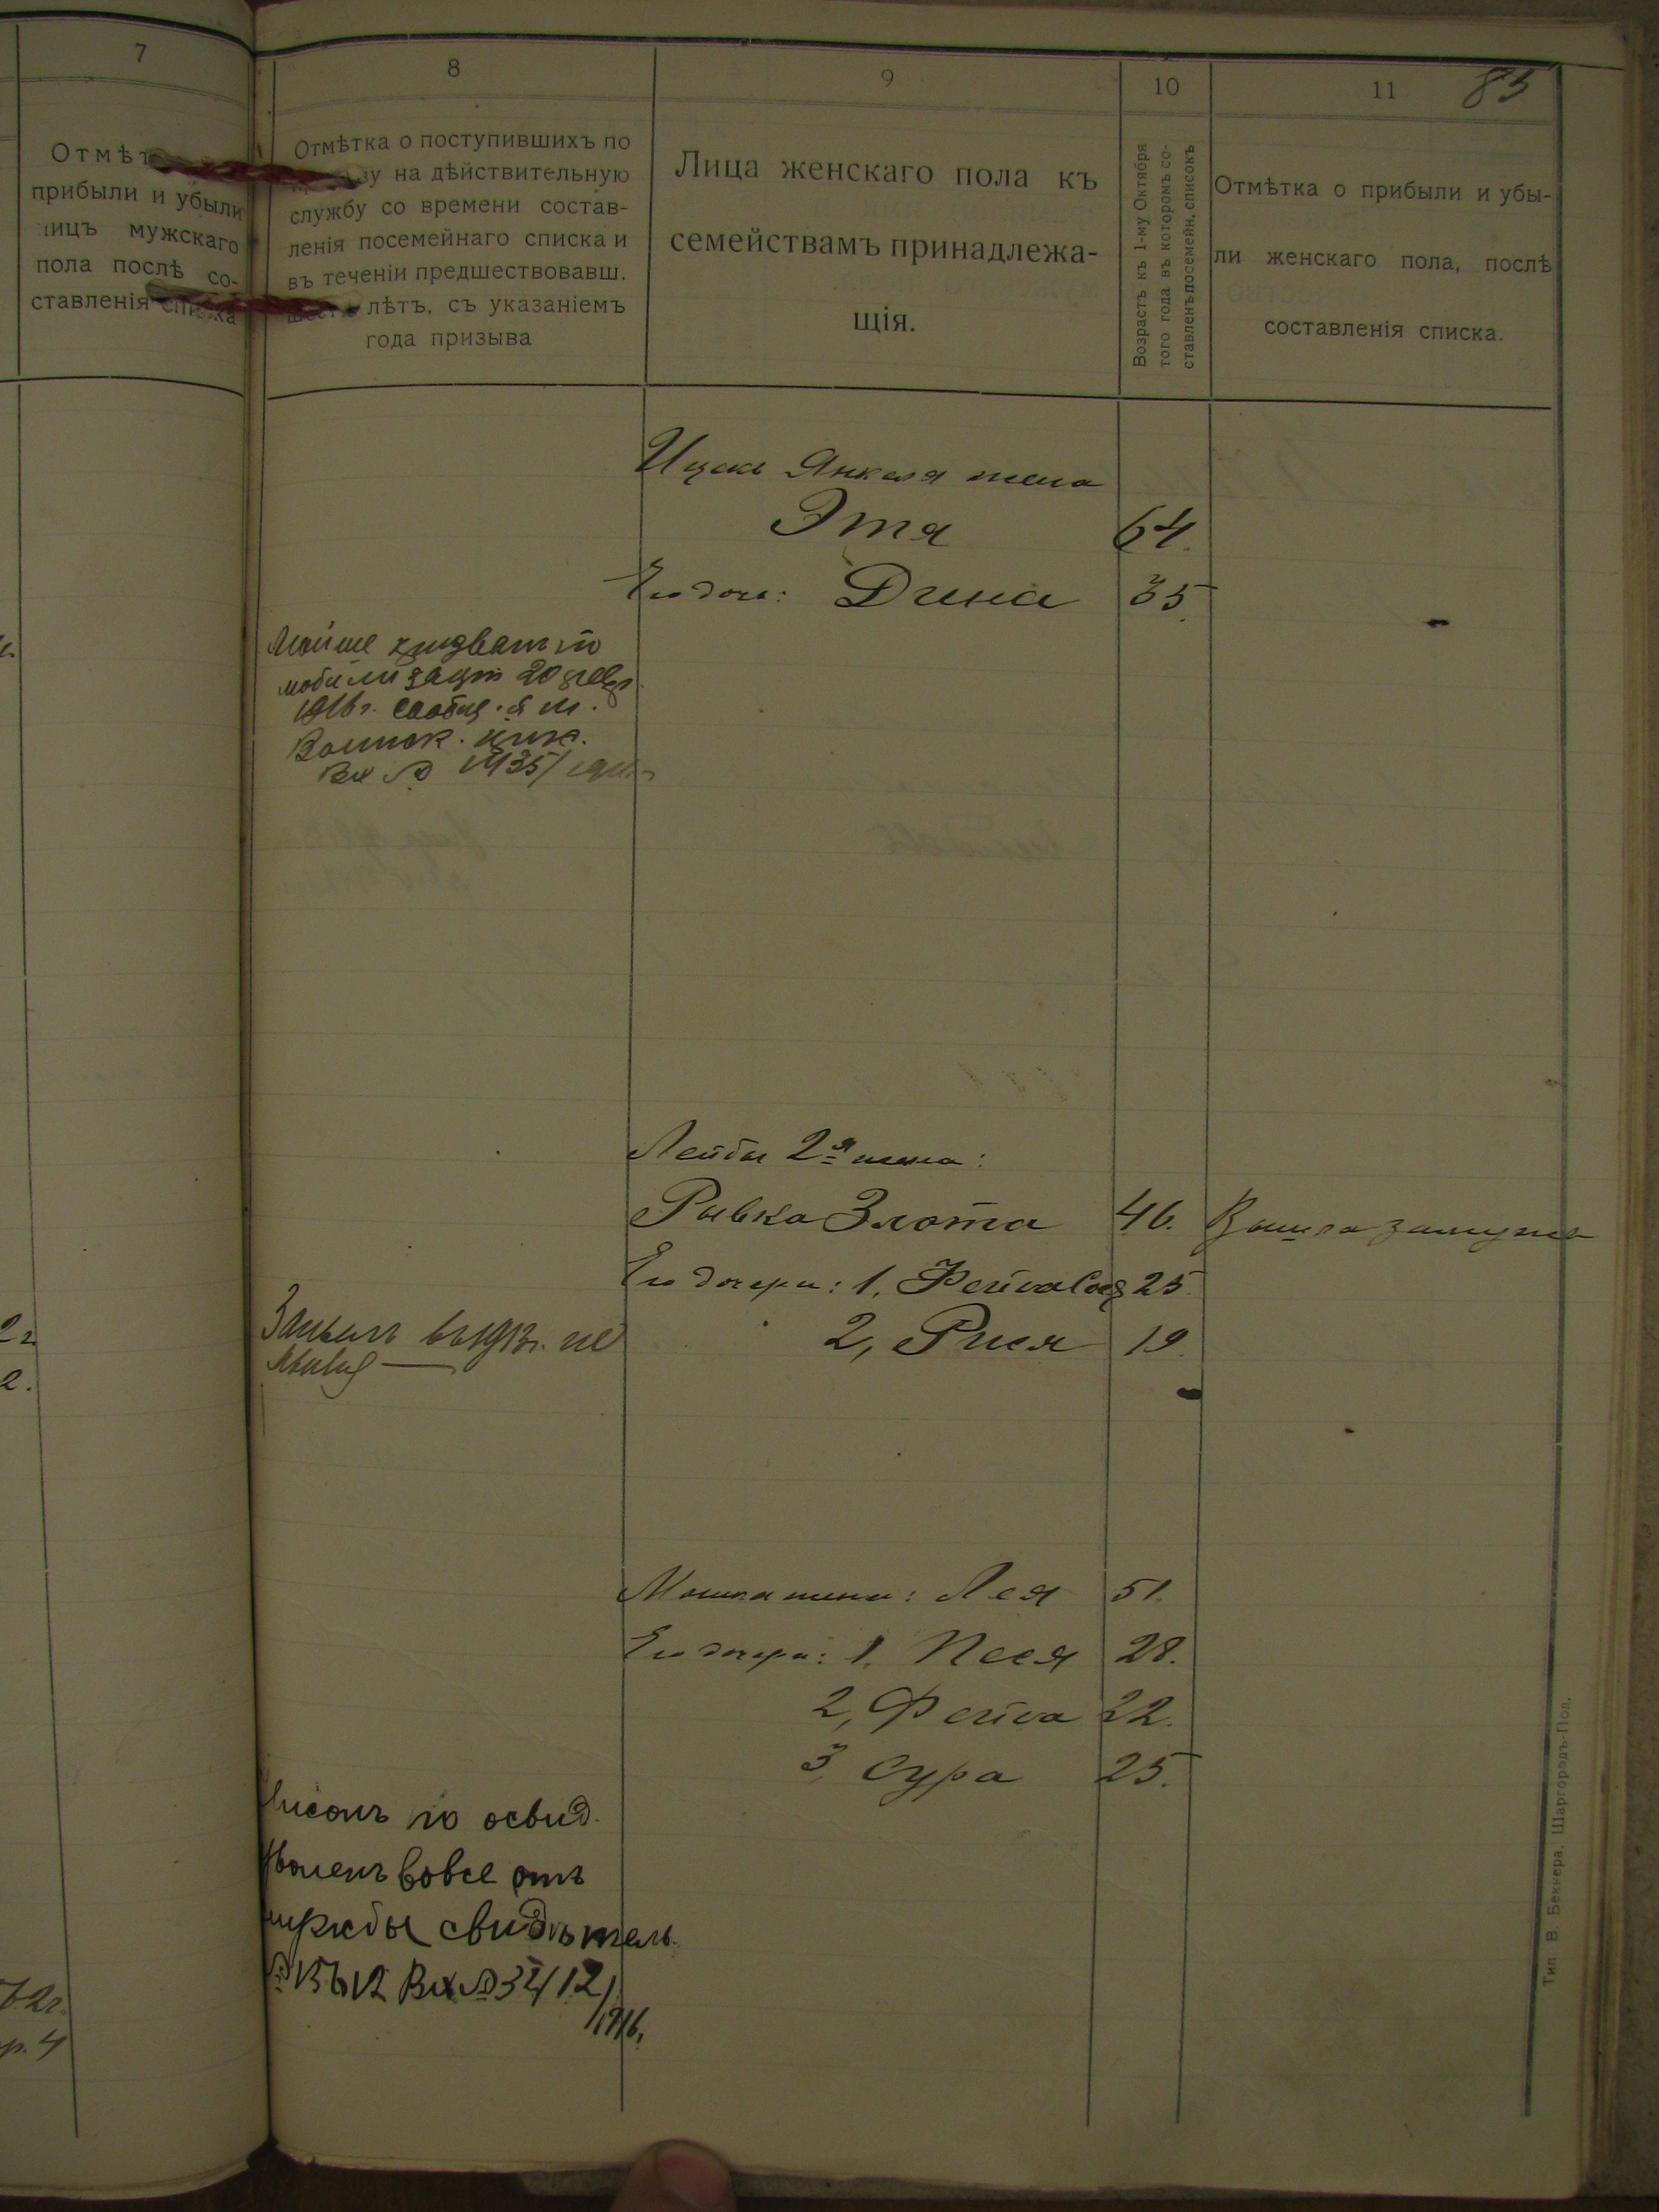 7
Отмѣт
прибыли и убыли
лицъ мужскаго
пола послѣ со-
ставленія списка
8
Отмѣтка о поступившихъ по
зу на дѣйствительную
службу со времени состав-
ленія посемейнаго списка и
въ теченіи предшествовавш.
лѣтъ, съ указаніемъ
года призыва
9
Лица женскаго пола къ
семействамъ принадлежа-
щія.
10
Возрастъ къ 1-му Октября
того года въ которомъ со-
ставленъ посемейн. списокъ
11
83
Отмѣтка о прибыли и убы-
ли женскаго пола, послѣ
составленія списка.
Янкеля жена
Этя 64.
Его дочь: Дина 35
Мойше призванъ по
мобилизаціи 20
1916 г. сообщ.
Воинск.
Вх №
Лейбы 2я жена:
Ривка Злота 46. Вышла замужъ
Его дочери: 1, Фейга 25.
2, Рися 19.
въ 1913 г. не
Мошка жена: Лея 51.
Его дочери: 1, Песя 28.
2, Фейга 22.
3, Сура 25.
по освид.
вовсе отъ
службы свидѣтель.
№ Вх № 3412/
1916.
Тип В. Беккера, Шаргородъ-Под.